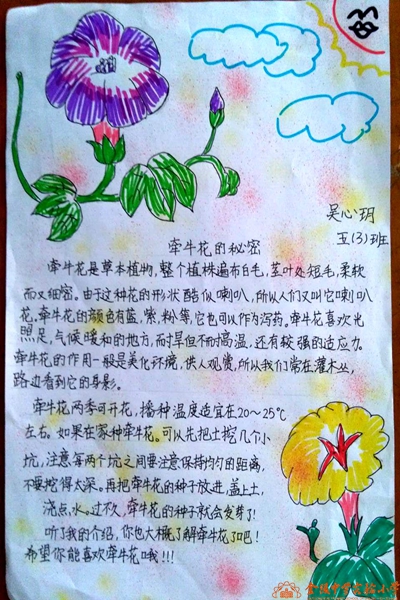 吴心玥
五(3)班
牵牛花的秘密
牵牛花是草本植物,整个植株遍布白毛,茎叶处短毛,柔软
而又细密。由于这种花的形状酷似喇叭,所以人们又叫它喇叭
花。牵牛花的颜色有蓝,紫,粉等,它也可以作为泻药。牵牛花喜欢光
照足,气候暖和的地方,而耐旱但不耐高温,还有较强的适应力。
牵牛花的作用一般是美化环境,供人观赏,所以我们常在灌木丛,
路边看到它的身影。
牵牛花两季可开花,播种温度适宜在20~25℃
左右。如果在家种牵牛花。可以先把土挖几个小
坑,注意每两个坑之间要注意保持均匀的距离,
不要挖得太深。再把牵牛花的种子放进,盖上土,
浇点水。过不久,牵牛花的种子就会发芽了!
听了我的介绍,你也大概了解牵牛花了吧!
希望你能喜欢牵牛花哦!!!